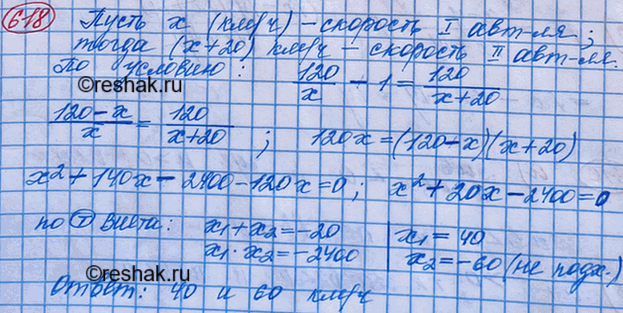 618 Пусть x (км/ч) - скорость I авт-ля;
тогда (x+20) км/ч - скорость II авт-ля.
По условию: 120/x - 1 = 120/(x+20)
©reshak.ru
(120-x)/x = 120/(x+20); 120x=(120-x)(x+20)
x²+140x-2400-120x=0; x²+20x-2400=0
по Т Виета: x₁+x₂=-20 | x₁=40
x₁·x₂=-2400 | x₂=-60 (не подх.)
©reshak.ru
Ответ: 40 и 60 км/ч